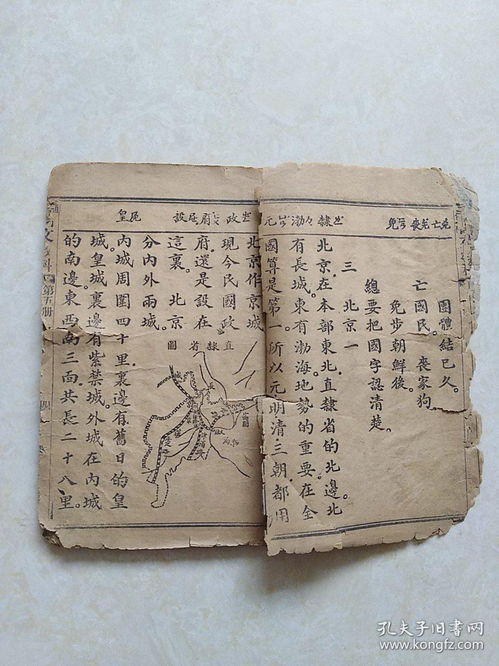 團體結已久。
亡國民。喪家狗
免步朝鮮後。
總要把國字認清楚。
三 北京一
北京在本部東北。直隸省的北邊。北
有長城。東有渤海。地勢的重要。在全
國算是第一。所以元明清三朝。都用
北京作京城
現今民國政
府還是設在
這裏。 北京
分內外兩城。
直隸省圖
內城周圍四十里。裏邊有舊日的皇
城。皇城裏邊有紫禁城。外城在內城
的南邊。東西南三面。共長二十八里。
第五册
孔夫子旧书网
www.kongfz.com